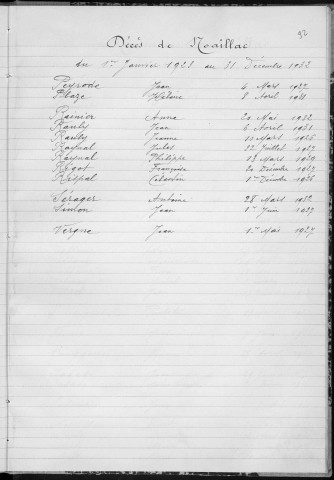 92
Décès de Noaillac
du 1er Janvier 1923 au 31 Décembre 1932
Peyrode Jean 4 Mars 1932
Plaze Hélène 8 Avril 1931
Rainier Anne 20 Mai 1932
Jean 6 Avril
Jeanne 11 Mars 1926
Raynal Jules 22 Juillet 1927
Raynal Philippe 13 Mars 1929
Françoise 20 Décembre 1929
Respal Célestin 1er Décembre 1926
Sérager Antoine 28 Mars 1932
Simon Jean 1er Juin 1929
Vergne Jean 1er Mai 1927